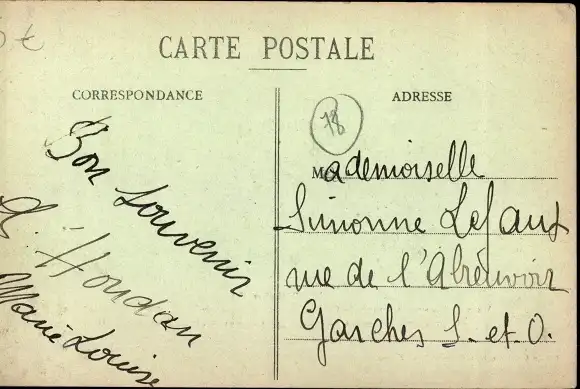 CARTE POSTALE
CORRESPONDANCE
ADRESSE
78
Bon souvenir
d'Houdan
Marie-Louise
Mademoiselle
Simonne
rue de l'Abreuvoir
Garches S. et O.